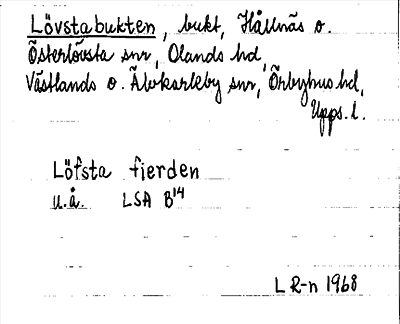 Lövstabukten, bukt, Hållnäs o.
Österlövsta snr, Olands hd,
Västlands o. Älvkarleby snr, Örbyhus hd,
Upps. l.
Löfsta fierden
u.å. LSA B14
L R-n 1968